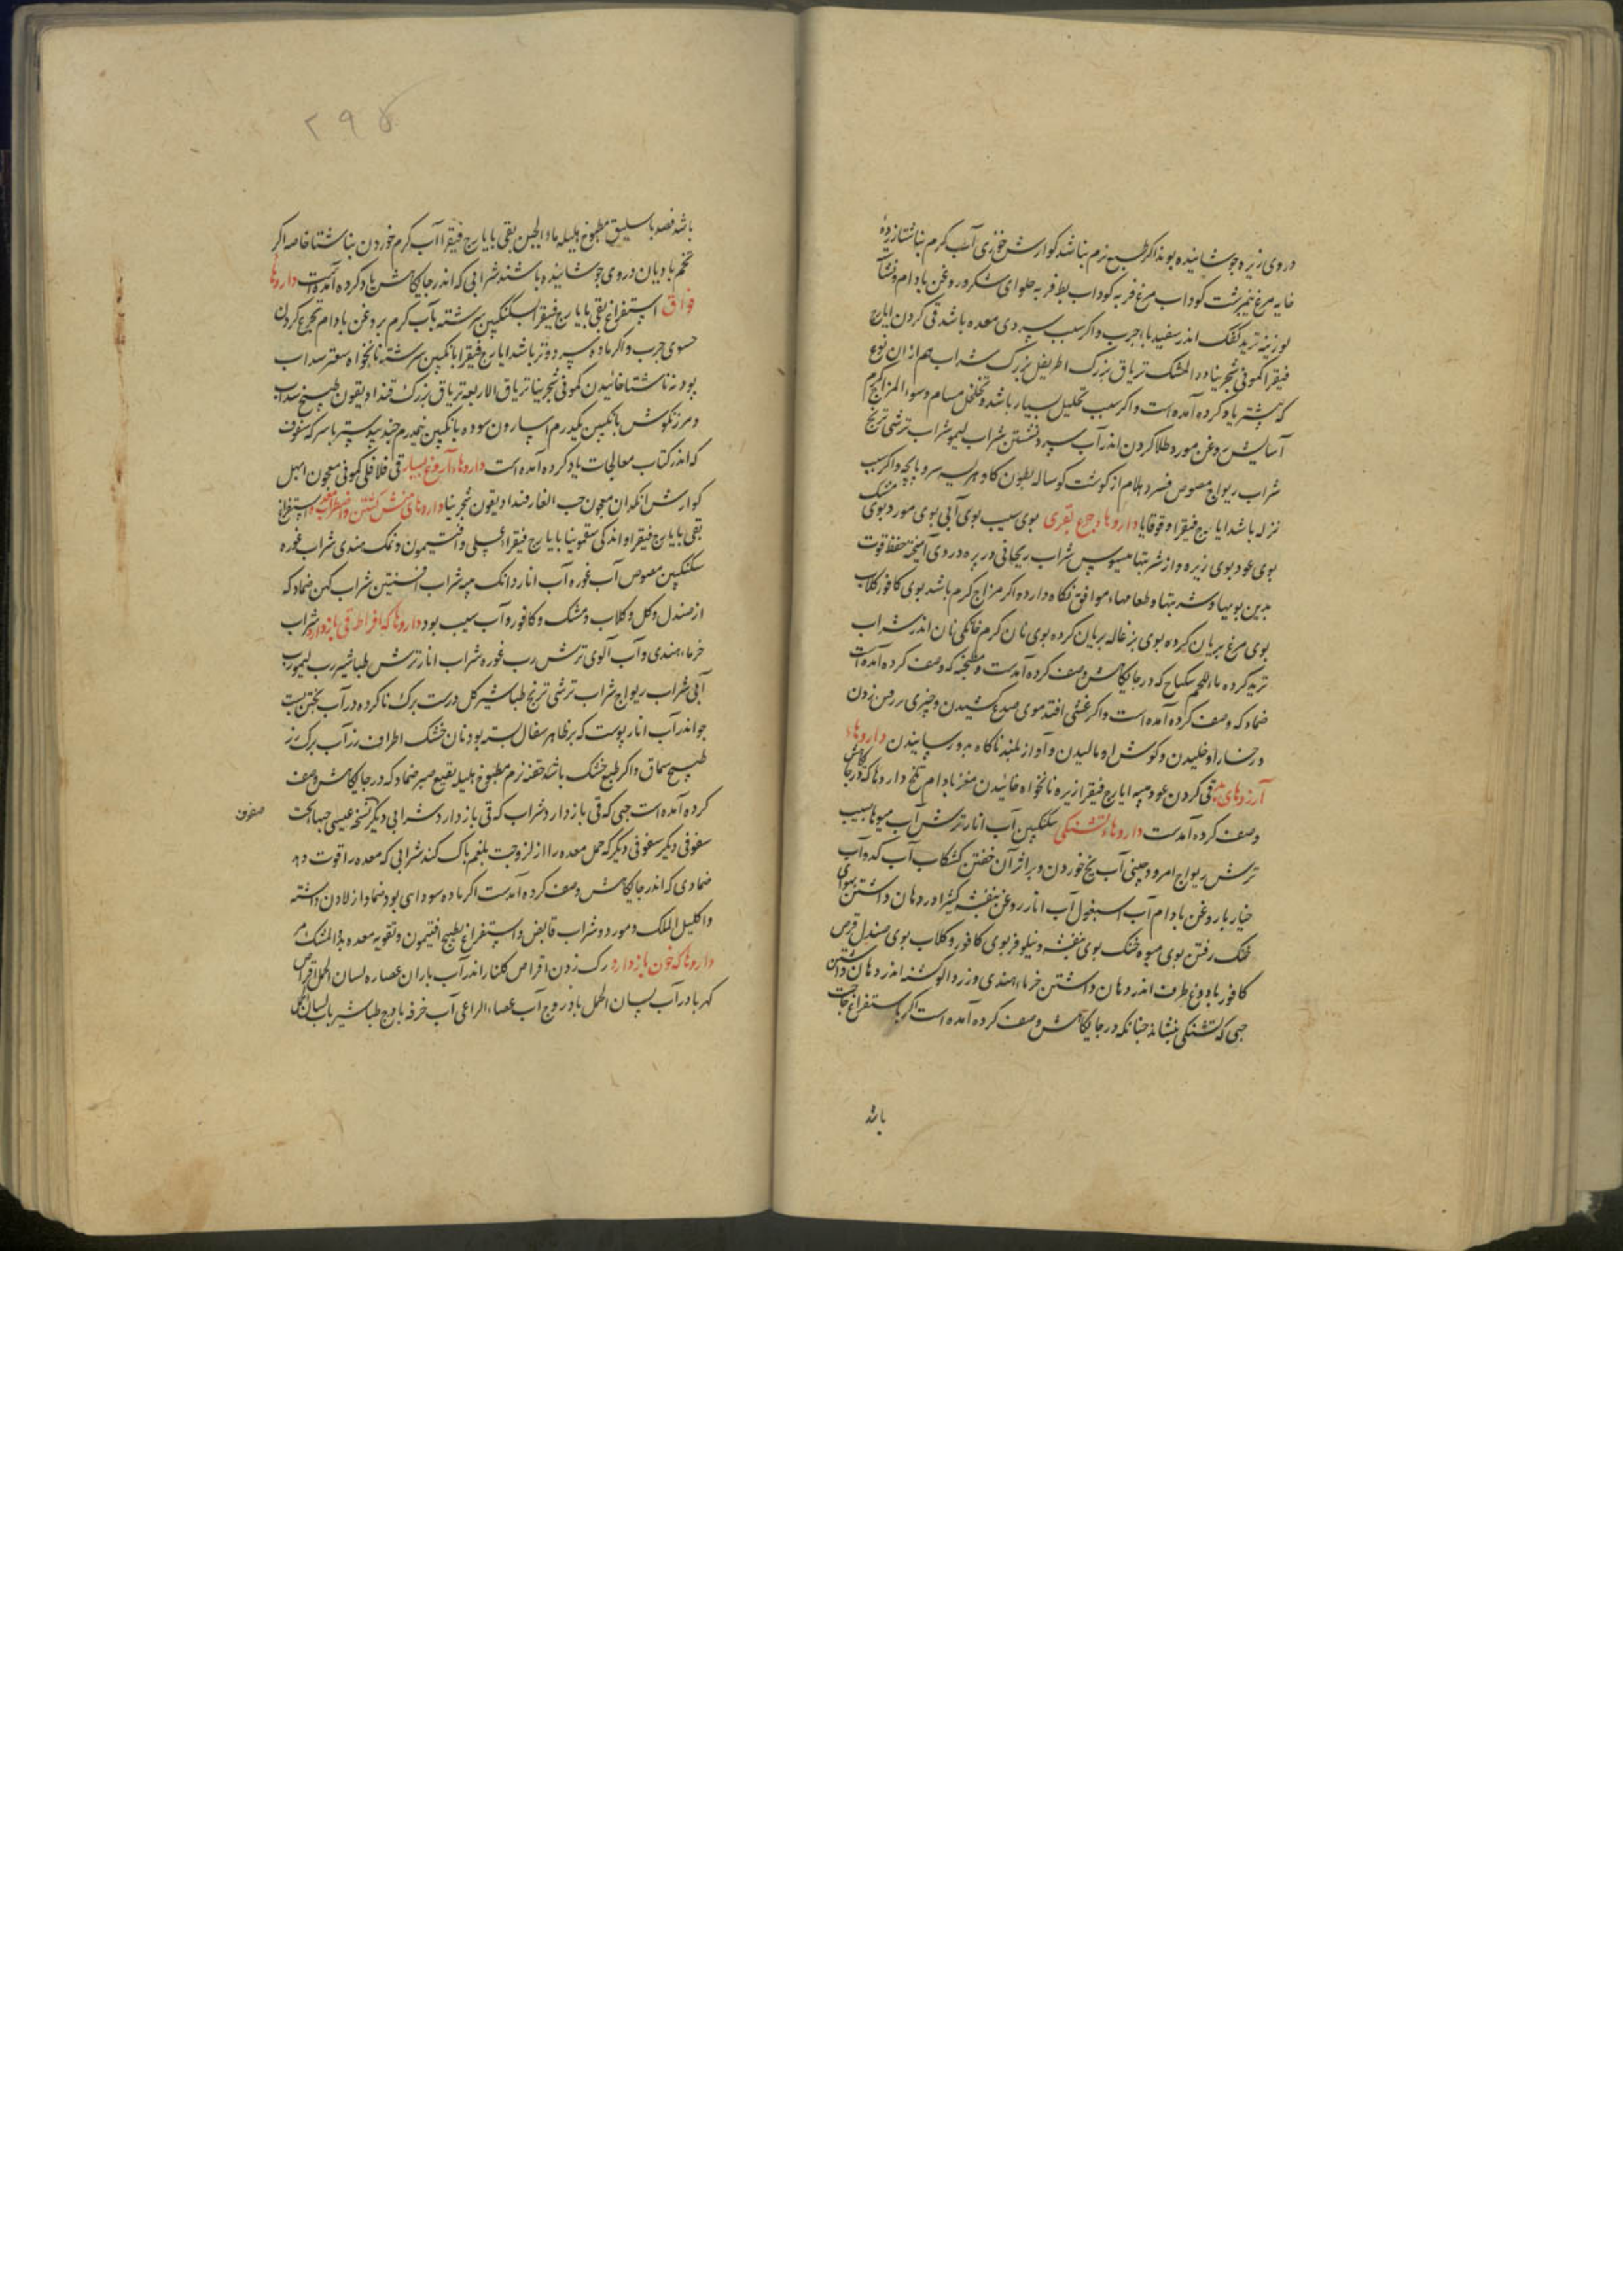 دروی زیره جوشانیده بود اکر طبع نرم نباشد کوارش خوزی آب کرم بناشتا زرده
خایه مرغ نیمبرشت کوداب مرغ فربه کوداب بط فربه حلوای شکر و روغن بادام و نشا
لوزینه ترید کفک اندر سفیدبا چرب و اکر سبب سردی معده باشد قی کردن ایارج
فیقرا کمونی شجرینا دوا المشک تریاق بزرک اطریفل بزرک شراب هم ازان نوع
که پیشتر یاد کرده آمده است و اکر سبب تحلیل بسیار باشد و تخلخل مسام و سوء المزاج کرم
آسایش روغن مورد طلا کردن اندر آب سرد نشستن شراب لیمو شراب ترشی ترنج
شراب ریواج مصوص فسرد هلام از کوشت کوساله بطون کاو هریسه سر و پاچه و اکر سبب
نزله باشد ایارج فیقرا و قوقایا داروهاء جوع بقری بوی سیب بوی آبی بوی مورد بوی مشک
بوی عود بوی زیره و از شربتها میسوس شراب ریحانی و زیره در وی آمیخته حفظ قوت
بدین بویها و شربتها و طعامهاء موافق نکاه دارد و اکر مزاج کرم باشد بوی کافور کلاب
بوی مرغ بریان کرده بوی بزغاله بریان کرده بوی نان کرم خانکی نان اندر شراب
ترید کرده ماء اللحم سکباج که در جایکاهش وصف کرده آمدست و مطجنه که وصف کرده آمده است
ضماد که وصف کرده آمده است و اکر غشی افتد موی صدغ کشیدن و چیزی سر زدن
در رخسار او خلیدن و کوش او مالیدن و آواز بلند ناکاه بدو رسانیدن داروهاء
آرزوهای بد قی کردن عود میبه ایارج فیقرا زیره نانخواه خائیدن مغز بادام تلخ داروها که در جایکاهش
وصف کرده آمدست داروهاء تشنکی سکنکبین آب انار ترش آب میوها سیب
ترش ریواج امرود چینی آب یخ خوردن و بر اثر آن خفتن کشکاب آب کدو آب
خیار با روغن بادام آب اسبغول آب انار روغن بنفشه کثیرا در دهان داشتن بهوای
خنک رفتن بوی میوه خنک بوی بنفشه و نیلوفر بوی کافور و کلاب بوی صندل قرص
کافور با دوغ طرف اندر دهان داشتن خرماء هندی و زردآلو کشته اندر دهان داشتن
حبی که تشنکی بنشاند چنانکه در جایکاهش وصف کرده آمده است اکر باستفراغ حاجت
باشد
۲۹۵
باشد فصد باسلیق مطبوخ هلیله ماء الجبن بقی بایارج فیقرا آب کرم خوردن بناشتا خاصه اکر
تخم بادیان دروی جوشانیده باشند شرابی که اندر جایکاهش یاد کرده آمده است داروهاء
فواق استفراغ بقی بایارج فیقرا بسکنکبین سرشته بآب کرم بروغن بادام تجرع کردن
حسوی چرب و اکر ماده سرد و تر باشد ایارج فیقرا بانکبین سرشته نانخواه سعتر سداب
پودنه ناشتا خائیدن کمونی شجرینا تریاق الاربعه تریاق بزرک قندادیقون طبیخ سداب
و مرزنکوش بانکبین یکدرم اسارون سوده بانکبین نیمدرم جندبیدستر با سرکه سفوف
که اندر کتاب معالجات یاد کرده آمده است داروهاء آروغ بسیار قی فلافلی کمونی معجون ابهل
کوارش انکدان معجون حب الغار قندادیقون شجرینا داروهای منش کشتن و اضطراب معده استفراغ
بقی بایارج فیقرا و اندکی سقمونیا بایارج فیقرا و افتیمون و نمک هندی شراب غوره
سکنکبین مصوص آب غوره آب انار دانک میبه شراب افسنتین شراب کهن ضماد که
از صندل و کل و کلاب و مشک و کافور و آب سیب بود داروها که افراط قی باز دارد شراب
خرماء هندی و آب آلوی ترش رب غوره شراب انار ترش طباشیر رب لیمو رب
آبی شراب ریواج شراب ترشی ترنج طباشیر کل درست برک ناکرده در آب پختن پست
جو اندر آب انار پوست که بر ظاهر سفال پسته بود نان خشک اطراف رز آب برک رز
طبیخ سماق و اکر طبع خشک باشد حقنه نرم مطبوخ هلیله نقیع صبر ضماد که در جایکاهش وصف
کرده آمده است حبی که قی باز دارد شراب که قی باز دارد شرابی دیکر نسخه عیسی صهاربخت
سفوفی دیکر سفوفی دیکر که خمل معده را از لزوجت بلغم پاک کند شرابی که معده را قوت دهد
ضمادی که اندر جایکاهش وصف کرده آمدست اکر ماده سودای بود ضماد از لادن و اشنه
و اکلیل الملک و مورد و شراب قابض و استفراغ بطبیخ افتیمون و تقویه معده بدوا المشک مر
داروها که خون باز دارد رک زدن اقراص کلنار اندر آب باران عصاره لسان الحمل اقراص
کهربا در آب لسان الحمل باذروج آب عصاء الراعی آب خرفه باذروج طباشیر باب لسان الحمل
سفوف